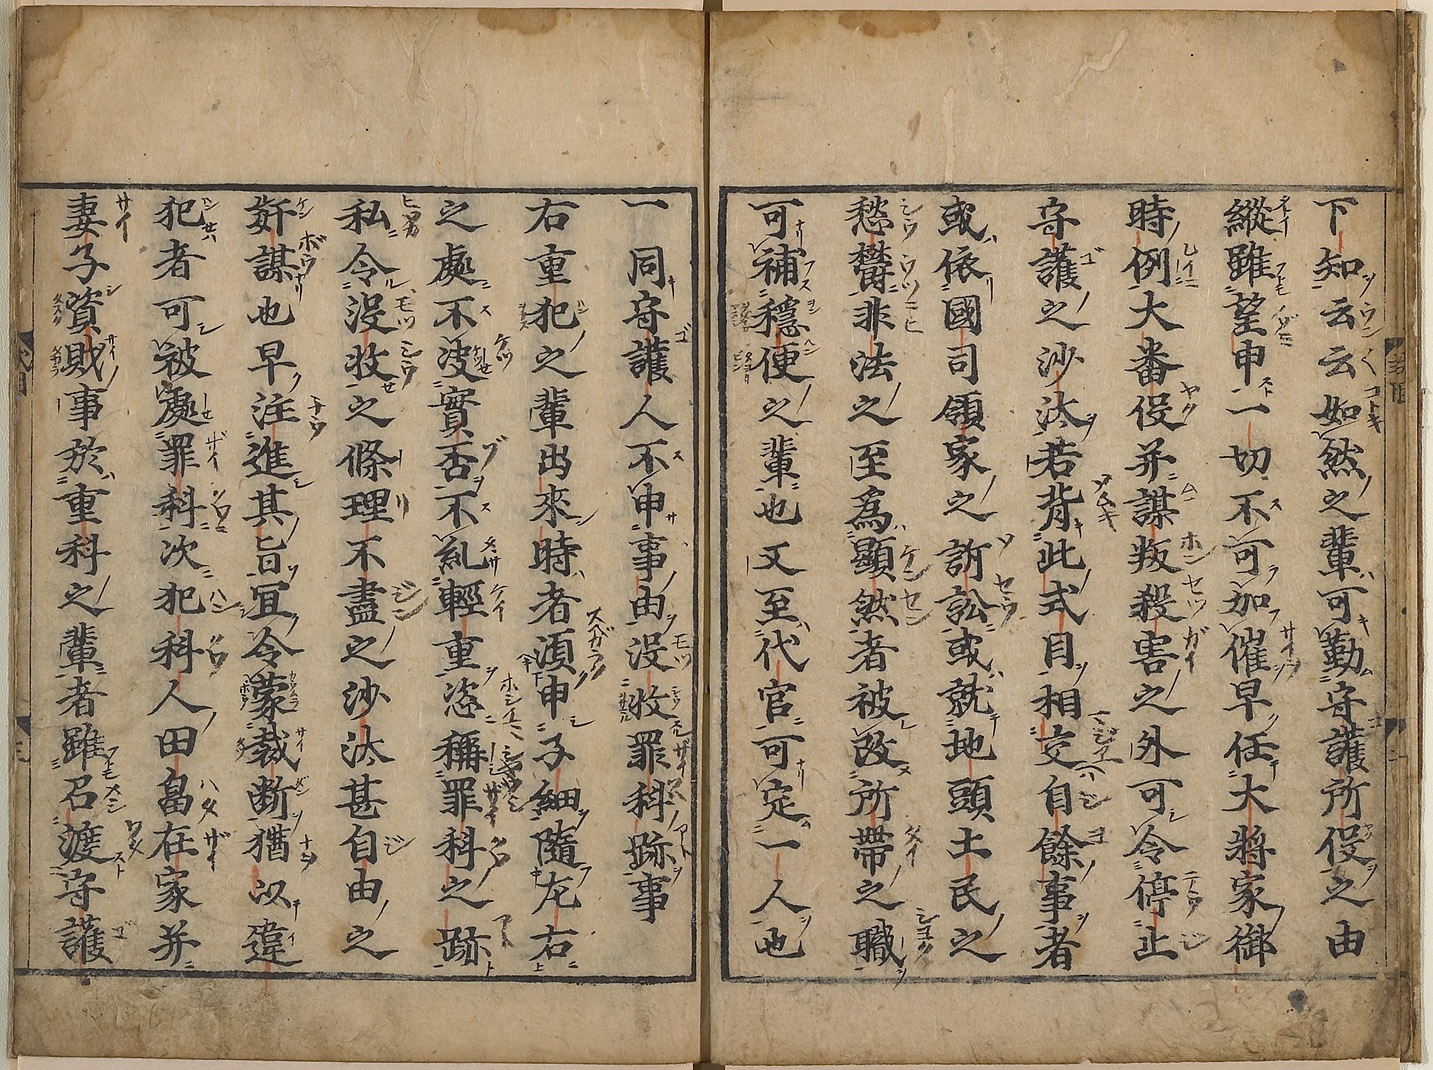 下知云云如然之輩可勤守護所役之由
縱雖望申一切不可加催早任大將家御
時例大番役并謀叛殺害之外可令停止
守護之沙汰若背此式目相交自餘事者
或依國司領家之訴訟或就地頭土民之
愁鬱非法之至為顯然者被改所帶之職
可補穩便之輩也又至代官可定一人也
一同守護人不申事由没收罪科跡事
右重犯之輩出來時者須申子細隨左右
之處不決實否不糺輕重恣稱罪科之跡
私令没收之條理不盡之沙汰甚自由之
奸謀也早注進其旨宜令蒙裁断猶以違
犯者可被處罪科次犯科人田畠在家并
妻子資財事於重科之輩者雖召渡守護